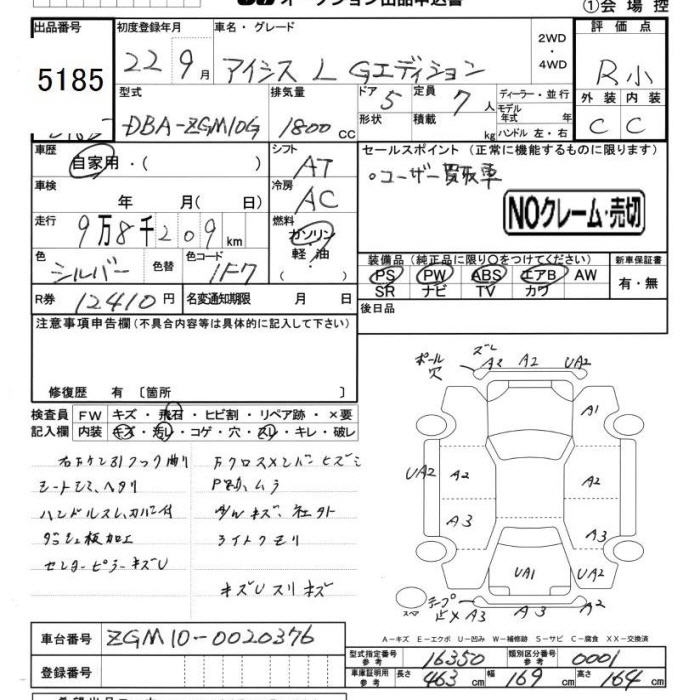 オークション出品申込書
①会場控
出品番号 初度登録年月 車名・グレード 2WD・4WD 評価点
5185 22 9月 アイシス L Gエディション R小
型式 排気量 ドア 5 定員 7人 ディーラー・並行 外装 内装
DBA-ZGM10G 1800cc 形状 積載 kg モデル年式 年 C C
ハンドル 左・右
車歴 シフト セールスポイント (正常に機能するものに限ります)
自家用・( ) AT 。ユーザー買取車
車検 冷房 NOクレーム・売切
年 月( 日) AC
走行 燃料
9万8千209km ガソリン・軽・油( )
装備品(純正品に限り○をつけてください) 新車保証書
色 色替 色コード PS PW ABS エアB AW 有・無
シルバー 1F7 SR ナビ TV カワ
R券 12410円 名変通知期限 月 日 後日品
注意事項申告欄(不具合内容等は具体的に記入して下さい)
修復歴 有 〔箇所
ポール穴 ズレ A2 A2 UA2
検査員 FW キズ・飛石・ヒビ割・リペア跡・×要
記入欄 内装 キズ・汚レ・コゲ・穴・スレ・キレ・破レ
A1
UA2 A2 A2 UA2
A3 A3
UA1
シートヤケ、ヘタリ
ハンドルスレ、カバー付
ダッシュ板加工 ライトクモリ
センターピラーキズU
キズUスリキズ
スペア テープ止× A3 A3 A2
A-キズ E-エクボ U-凹み W-補修跡 S-サビ C-腐食 XX-交換済
車台番号 ZGM10-0020376
型式指定番号 参考 16350 類別区分番号 参考 0001
登録番号
車庫証明用 参考 長さ 463cm 幅 169cm 高さ 164cm